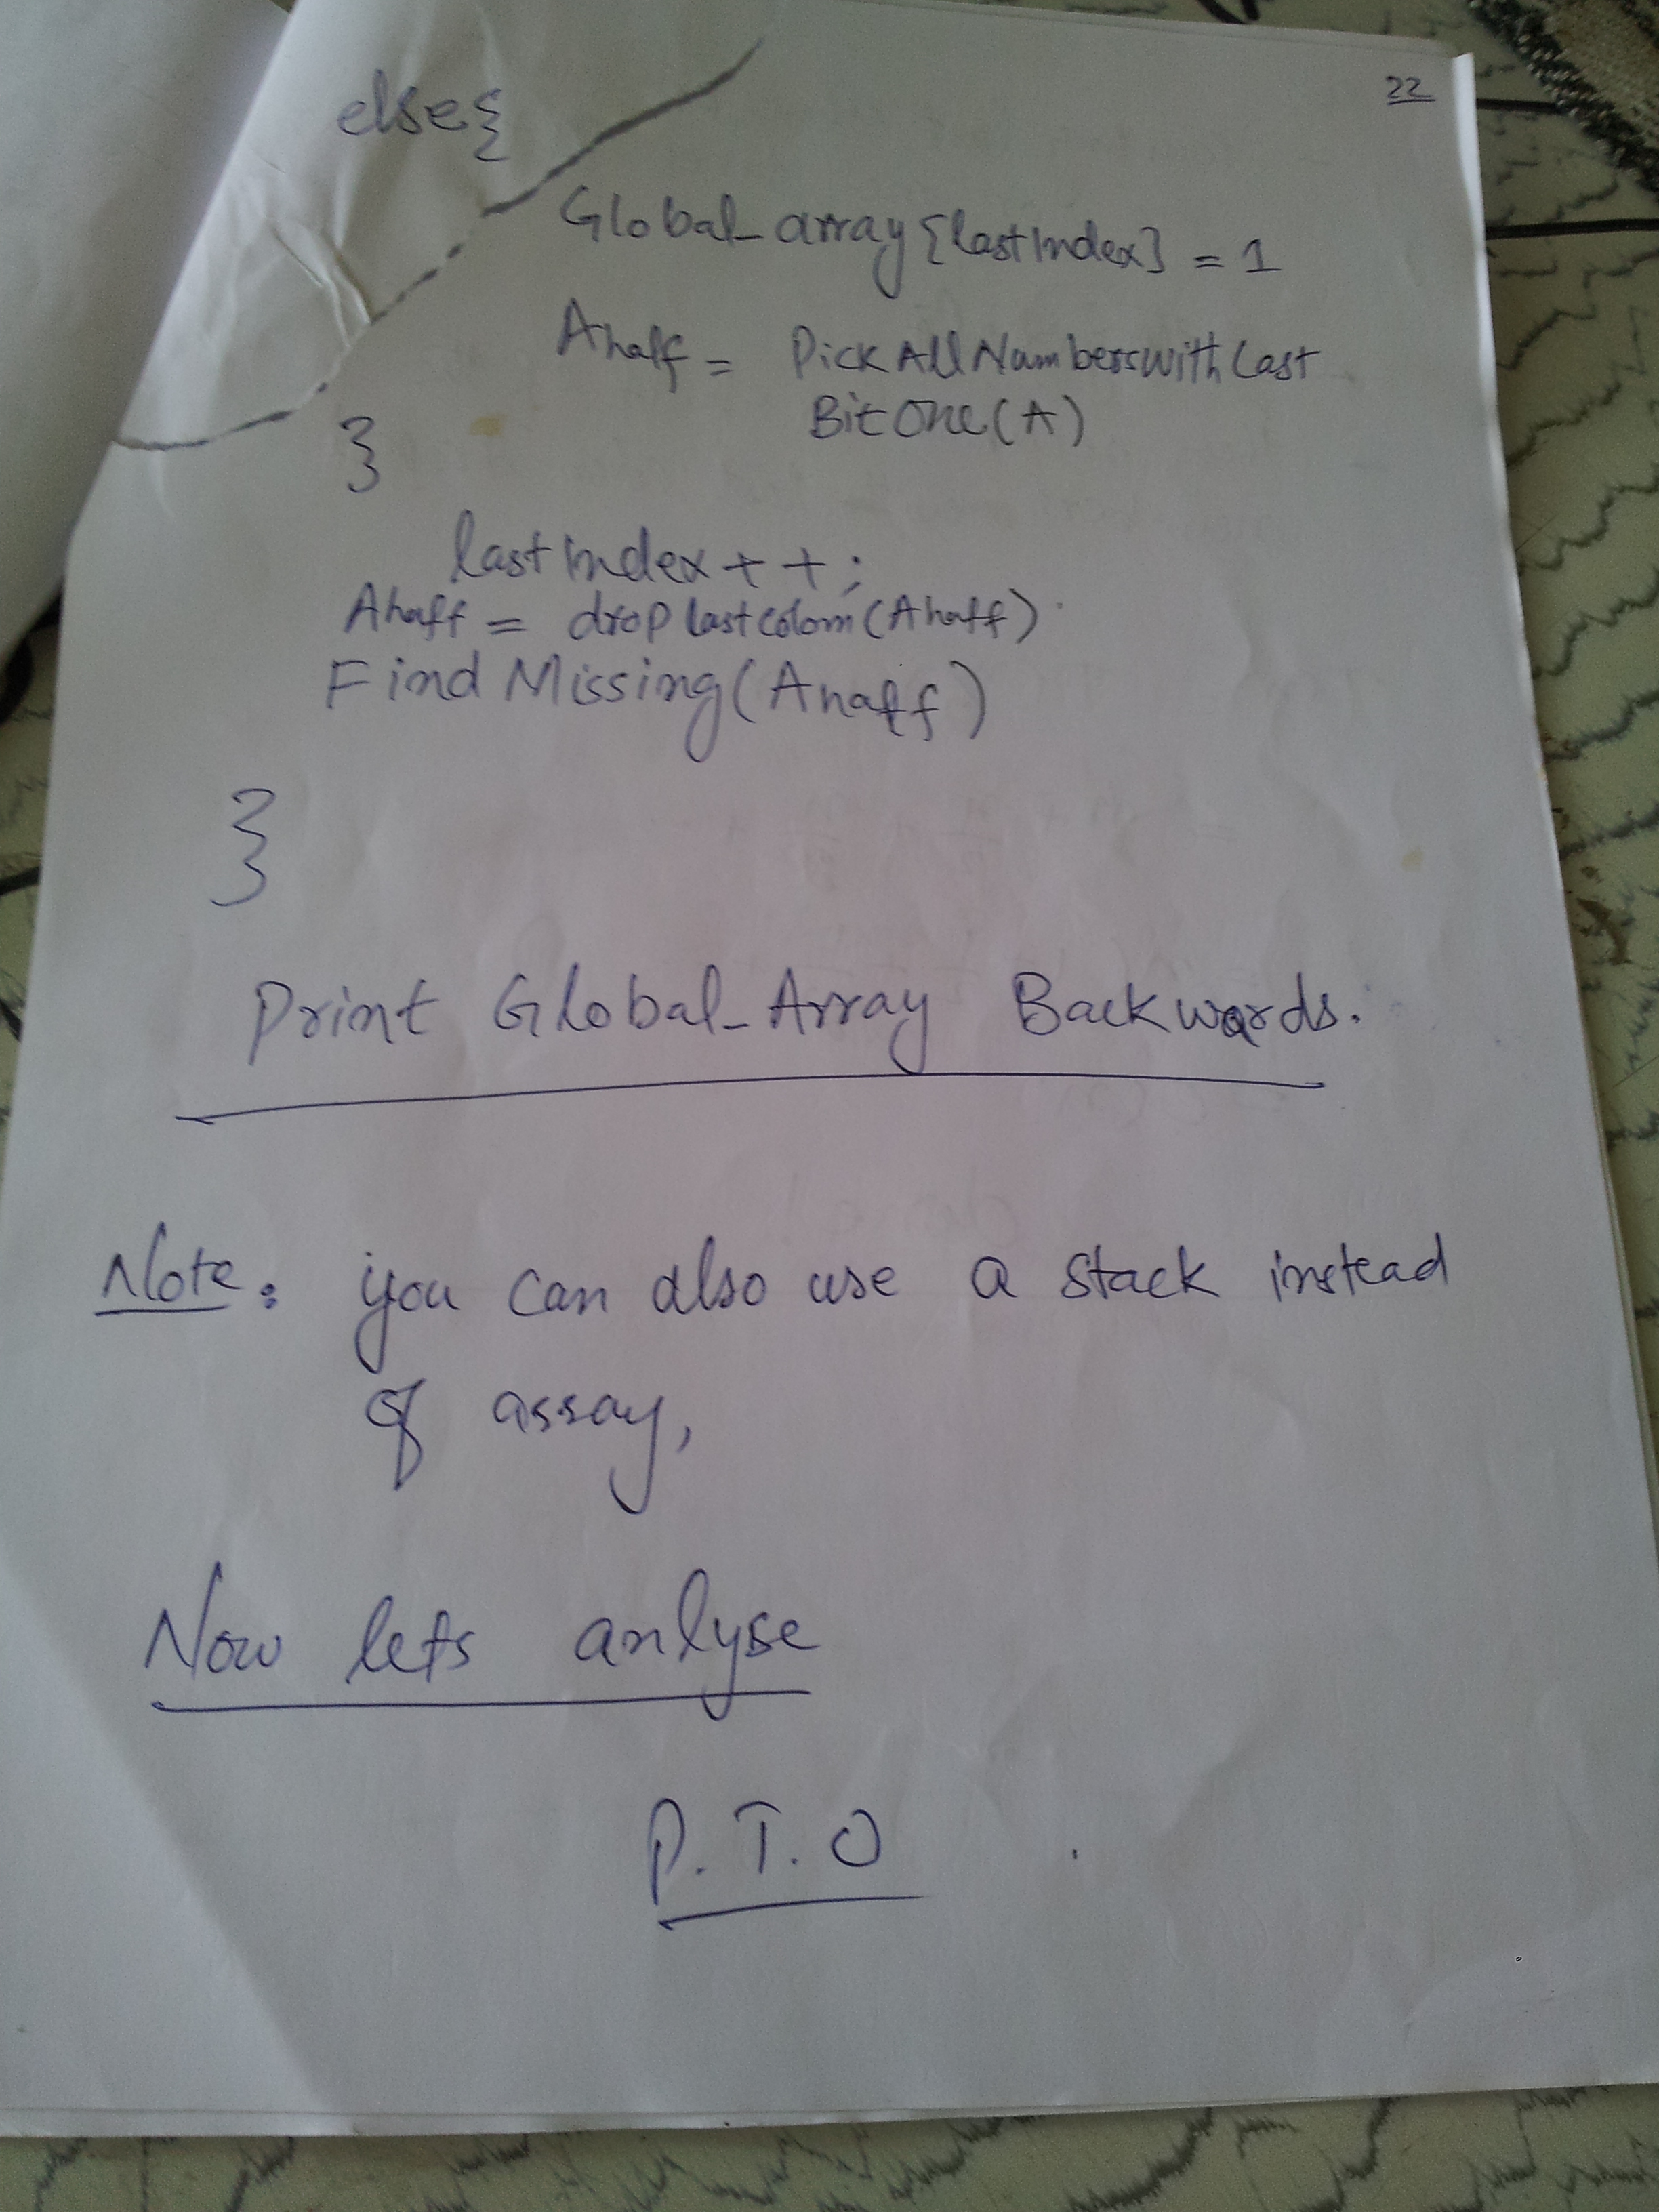 22
else{
Global_array[lastIndex] = 1
Ahalf = PickAllNumberswithLast
BitOne(A)
}
lastIndex++;
Ahalf = droplastcolom(Ahalf)
FindMissing(Ahalf)
}
Print Global_Array Backwards.
Note: you can also use a stack instead
of array,
Now lets anlyse
P.T.O